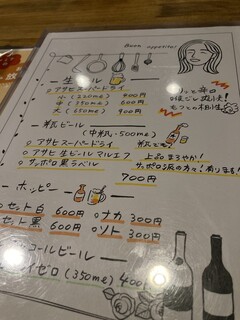 Bon appetite!
生ビール
アサヒスーパードライ
小(220me) 400円
中(350me) 600円
大(650me) 900円
キリッと辛口
ほどよい炭酸!
もつとの相性
瓶ビール
(中瓶-500me)
アサヒスーパードライ
アサヒ生ビールマルエフ
サッポロ黒ラベル
700円
上品まろやか!
ホッピー
セット白 600円
セット黒 600円
ナカ 300円
ソト 300円
コールビール
ゼロ(350me) 400